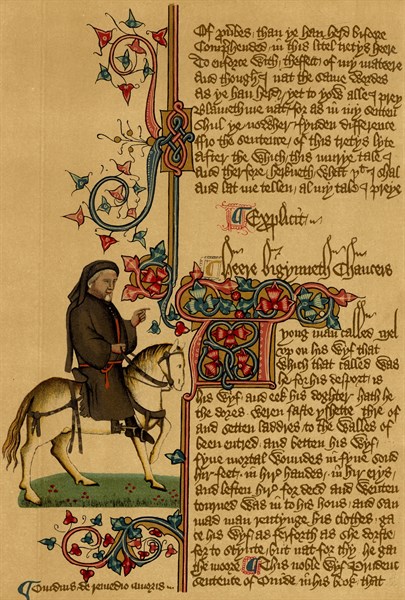 Of prů́bes than ye han herd bifore
Comprehended in this litel tretys heere
To enforce with theffect of my mateere
And though I nat the same wordes
as ye han herd yet to yow alle I prey
Blameth me nat for as in my senten
Shul ye nowher fynden difference
ffro the sentence of this tretys lyte
after the which this murye tale I
and ther fore herkneth what I shal
and lat me tellen al my tale I preye
Explicit
Heere bigynneth Chaucers
A yong man called Mel
up on his wyf that
which that called was
he for his desport is
his wyf and eek his doghter hath he
the dores weren faste yshette thre of
and setten laddres to the walles of
been entred and betten his wyf
fyve mortal woundes in fyve sond
hir feet in hir handes in hir erys
and leften hir for deed and wenten
torned was in to his hous and saw
mad man rentynge his clothes ga
ce his wyf as ferforth as she dorste
for to stynte but nat for thy he gan
the moore This noble wyf Prudenc
Sentence of Ovide in his book that
Ovidius de remedio amoris